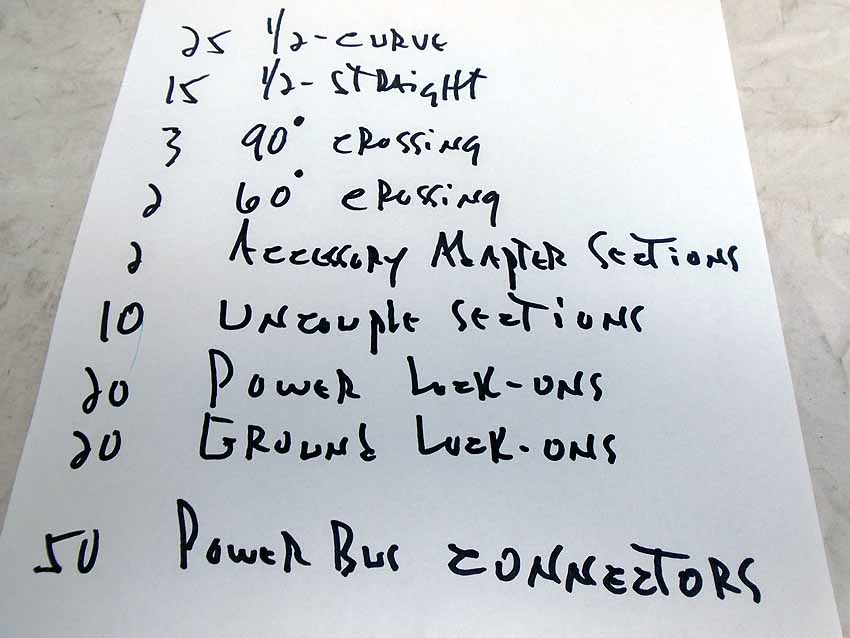 25 1/2-CURVE
15 1/2-STRAigHT
3 90° CROSSiNg
2 60° CROSSiNg
2 ACCESSORY ADAPTER SECTiONS
10 UNCOUPlE SECTiONS
20 POWER LOCK-ONS
20 GROUND LOCK-ONS
50 POWER BUS CONNECTORS